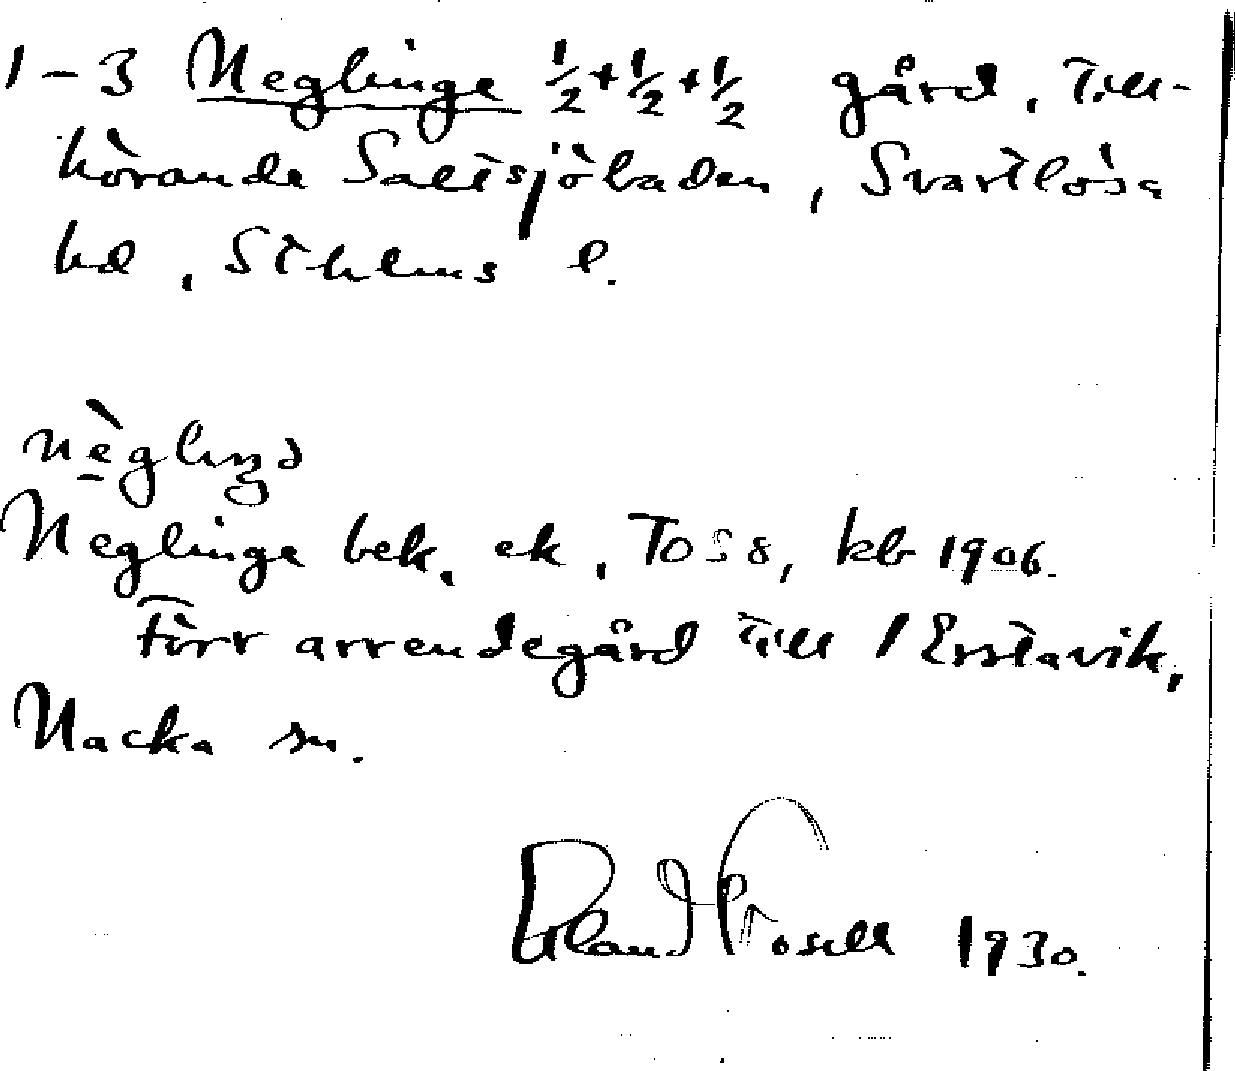 1-3 Neglinge ½+½+½ gård, Till-
hörande Saltsjöbaden, Svartlösa
hd, Sthlms l.
nèglıŋə
Neglinge bek. ek, To 58, kb 1906.
Förr arrendegård till 1 Erstavik,
Nacka sn.
1930.